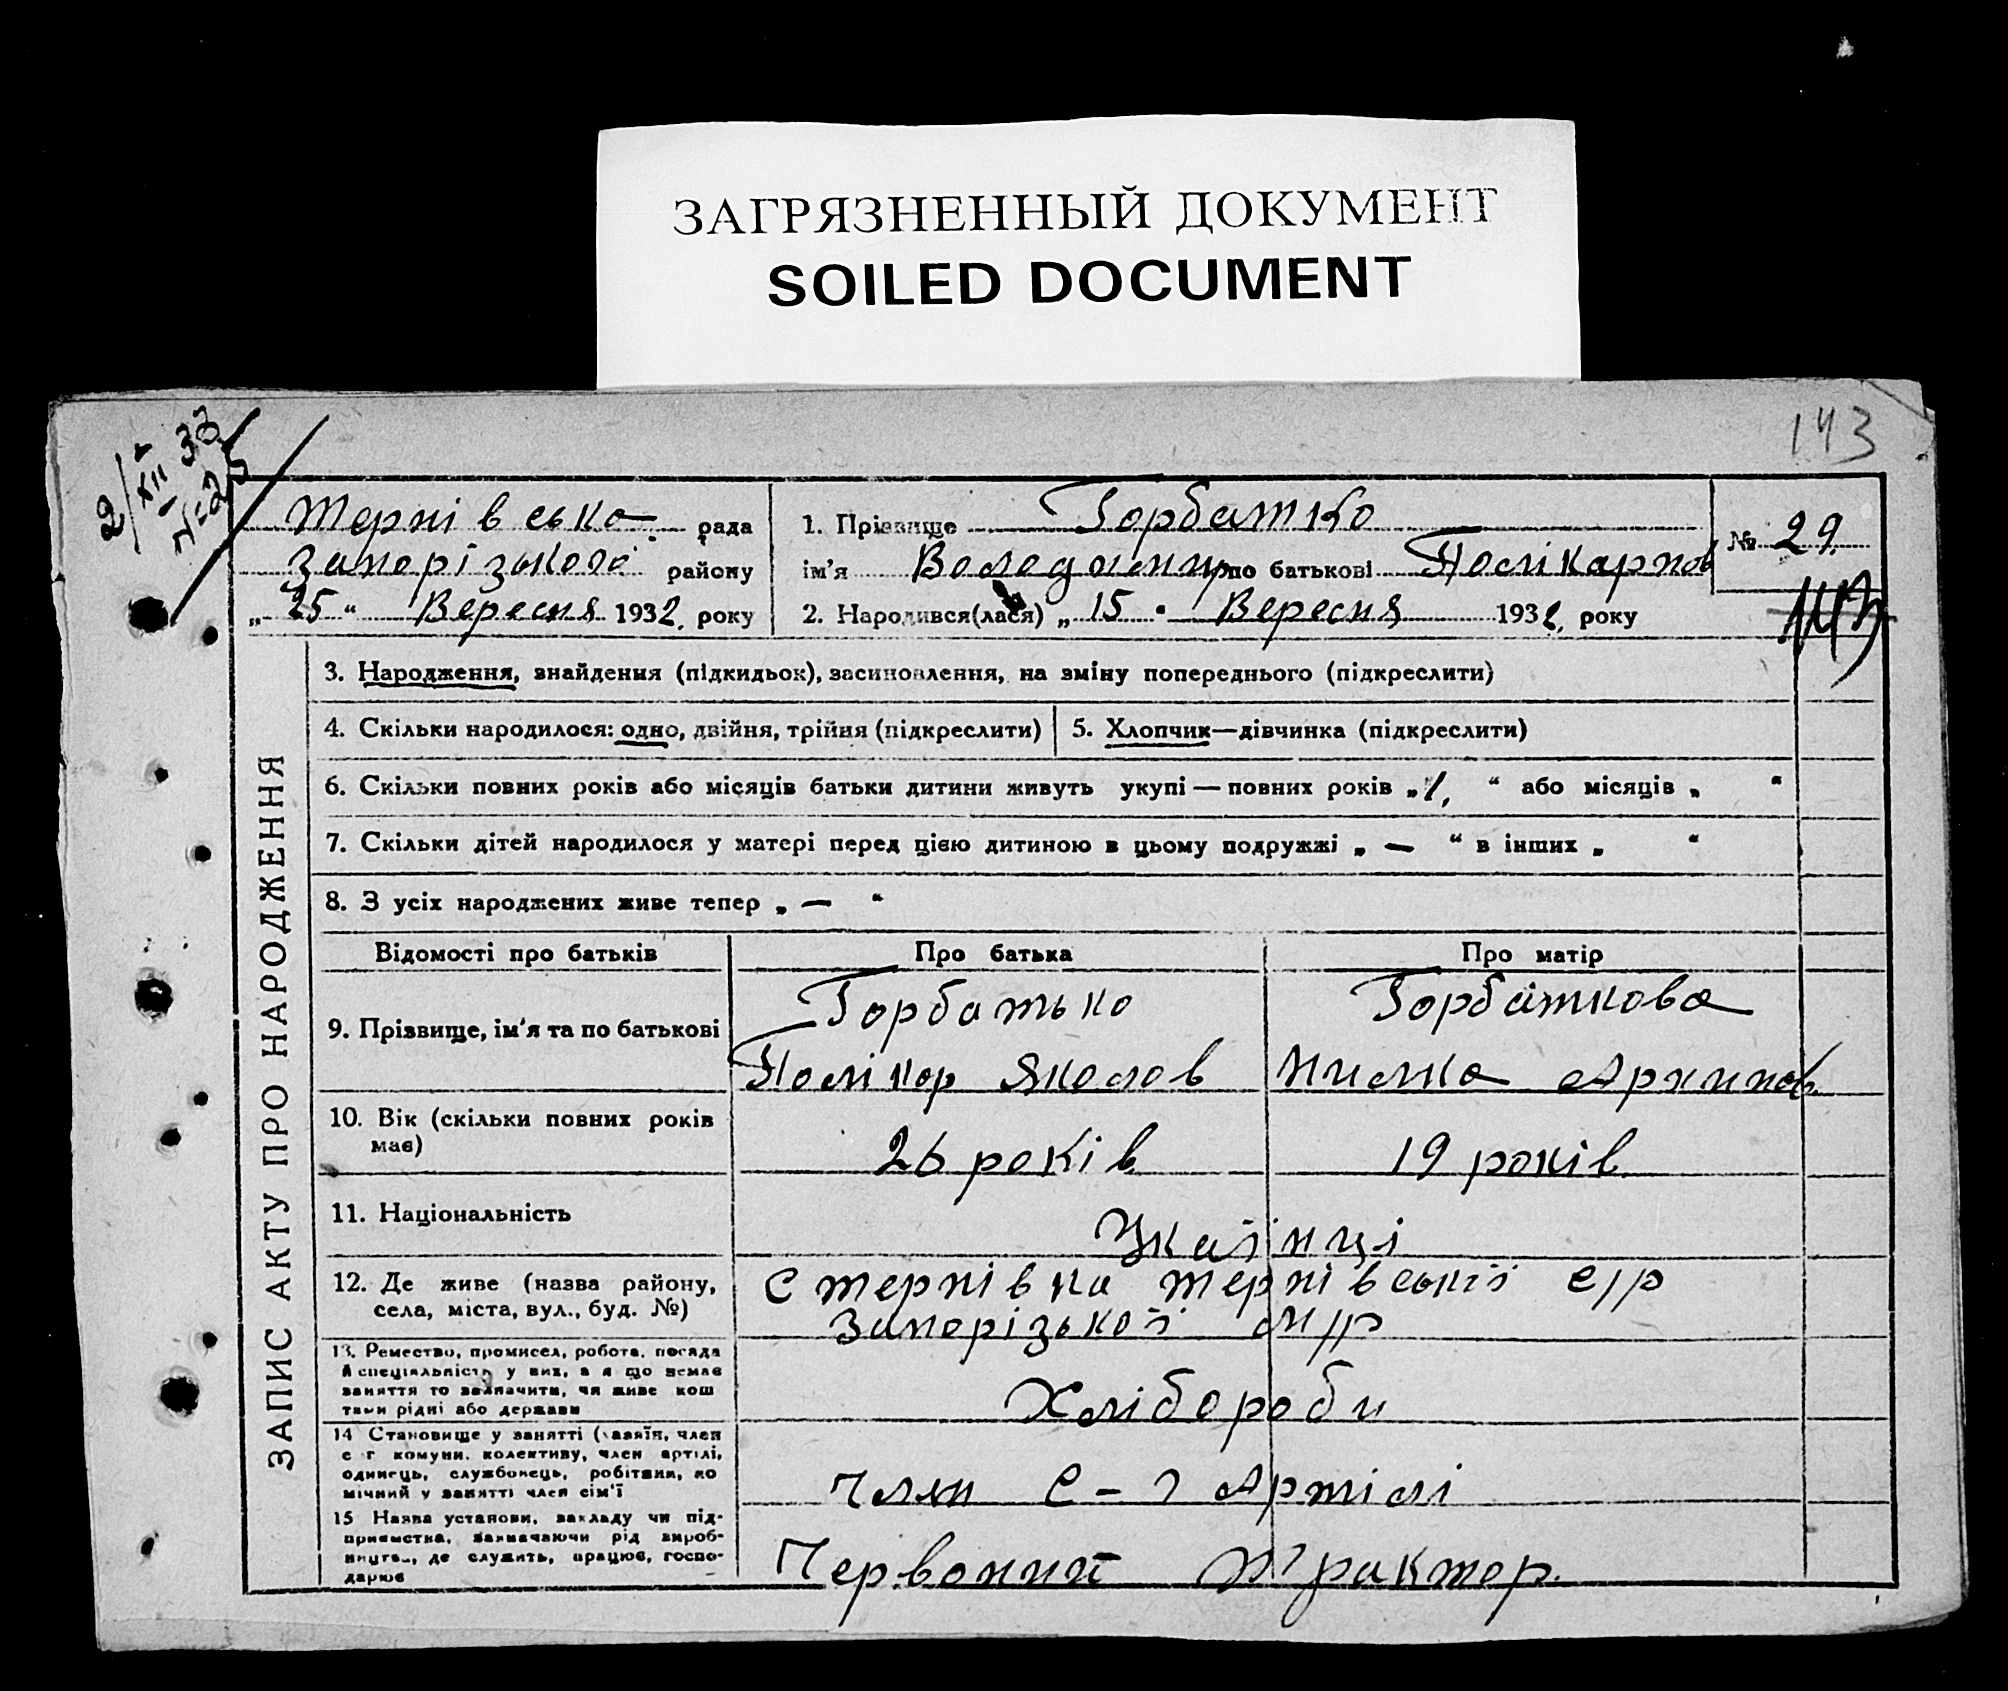 ЗАГРЯЗНЕННЫЙ ДОКУМЕНТ
SOILED DOCUMENT
143
2/XII 33
Тернівська рада
Запорізького району
„25“ Вересня 1932 року
1. Прізвище Горбатко
ім'я Володимир по батькові Полікарпов
2. Народився(лася) „15“ Вересня 1932 року
№ 29
ЗАПИС АКТУ ПРО НАРОДЖЕННЯ
3. Народження, знайдення (підкидьок), засиновлення, на зміну попереднього (підкреслити)
4. Скільки народилося: одно, двійня, трійня (підкреслити)
5. Хлопчик—дівчинка (підкреслити)
6. Скільки повних років або місяців батьки дитини живуть укупі — повних років „1“ або місяців „ “
7. Скільки дітей народилося у матері перед цією дитиною в цьому подружжі „ — “ в інших „ “
8. З усіх народжених живе тепер „ — “
Відомості про батьків
Про батька
Про матір
9. Прізвище, ім'я та по батькові
Горбатько
Полікар Яколов
Горбаткова
Архипов
10. Вік (скільки повних років
має)
26 років
19 років
11. Національність
Укаїнці
12. Де живе (назва району,
села, міста, вул., буд. №)
С Тернівка Тернівської с/р
Запорізької м/р
13. Ремество, промисел, робота, посада
й спеціяльність у них, а я що немає
заняття то зазначити, чи живе кош
тами рідні або держави
Хлібороби
14 Становище у занятті (хазяїн, член
с г комуни, колективу, член артілі,
одинець, службовець, робітник, по
мічний у занятті член сім'ї
Члни С-г Артілі
15 Назва установи, закладу чи під-
приємства, зазначаючи рід вироб-
ництва, де служить, працює, госпо-
дарює
Червоний Трактор.